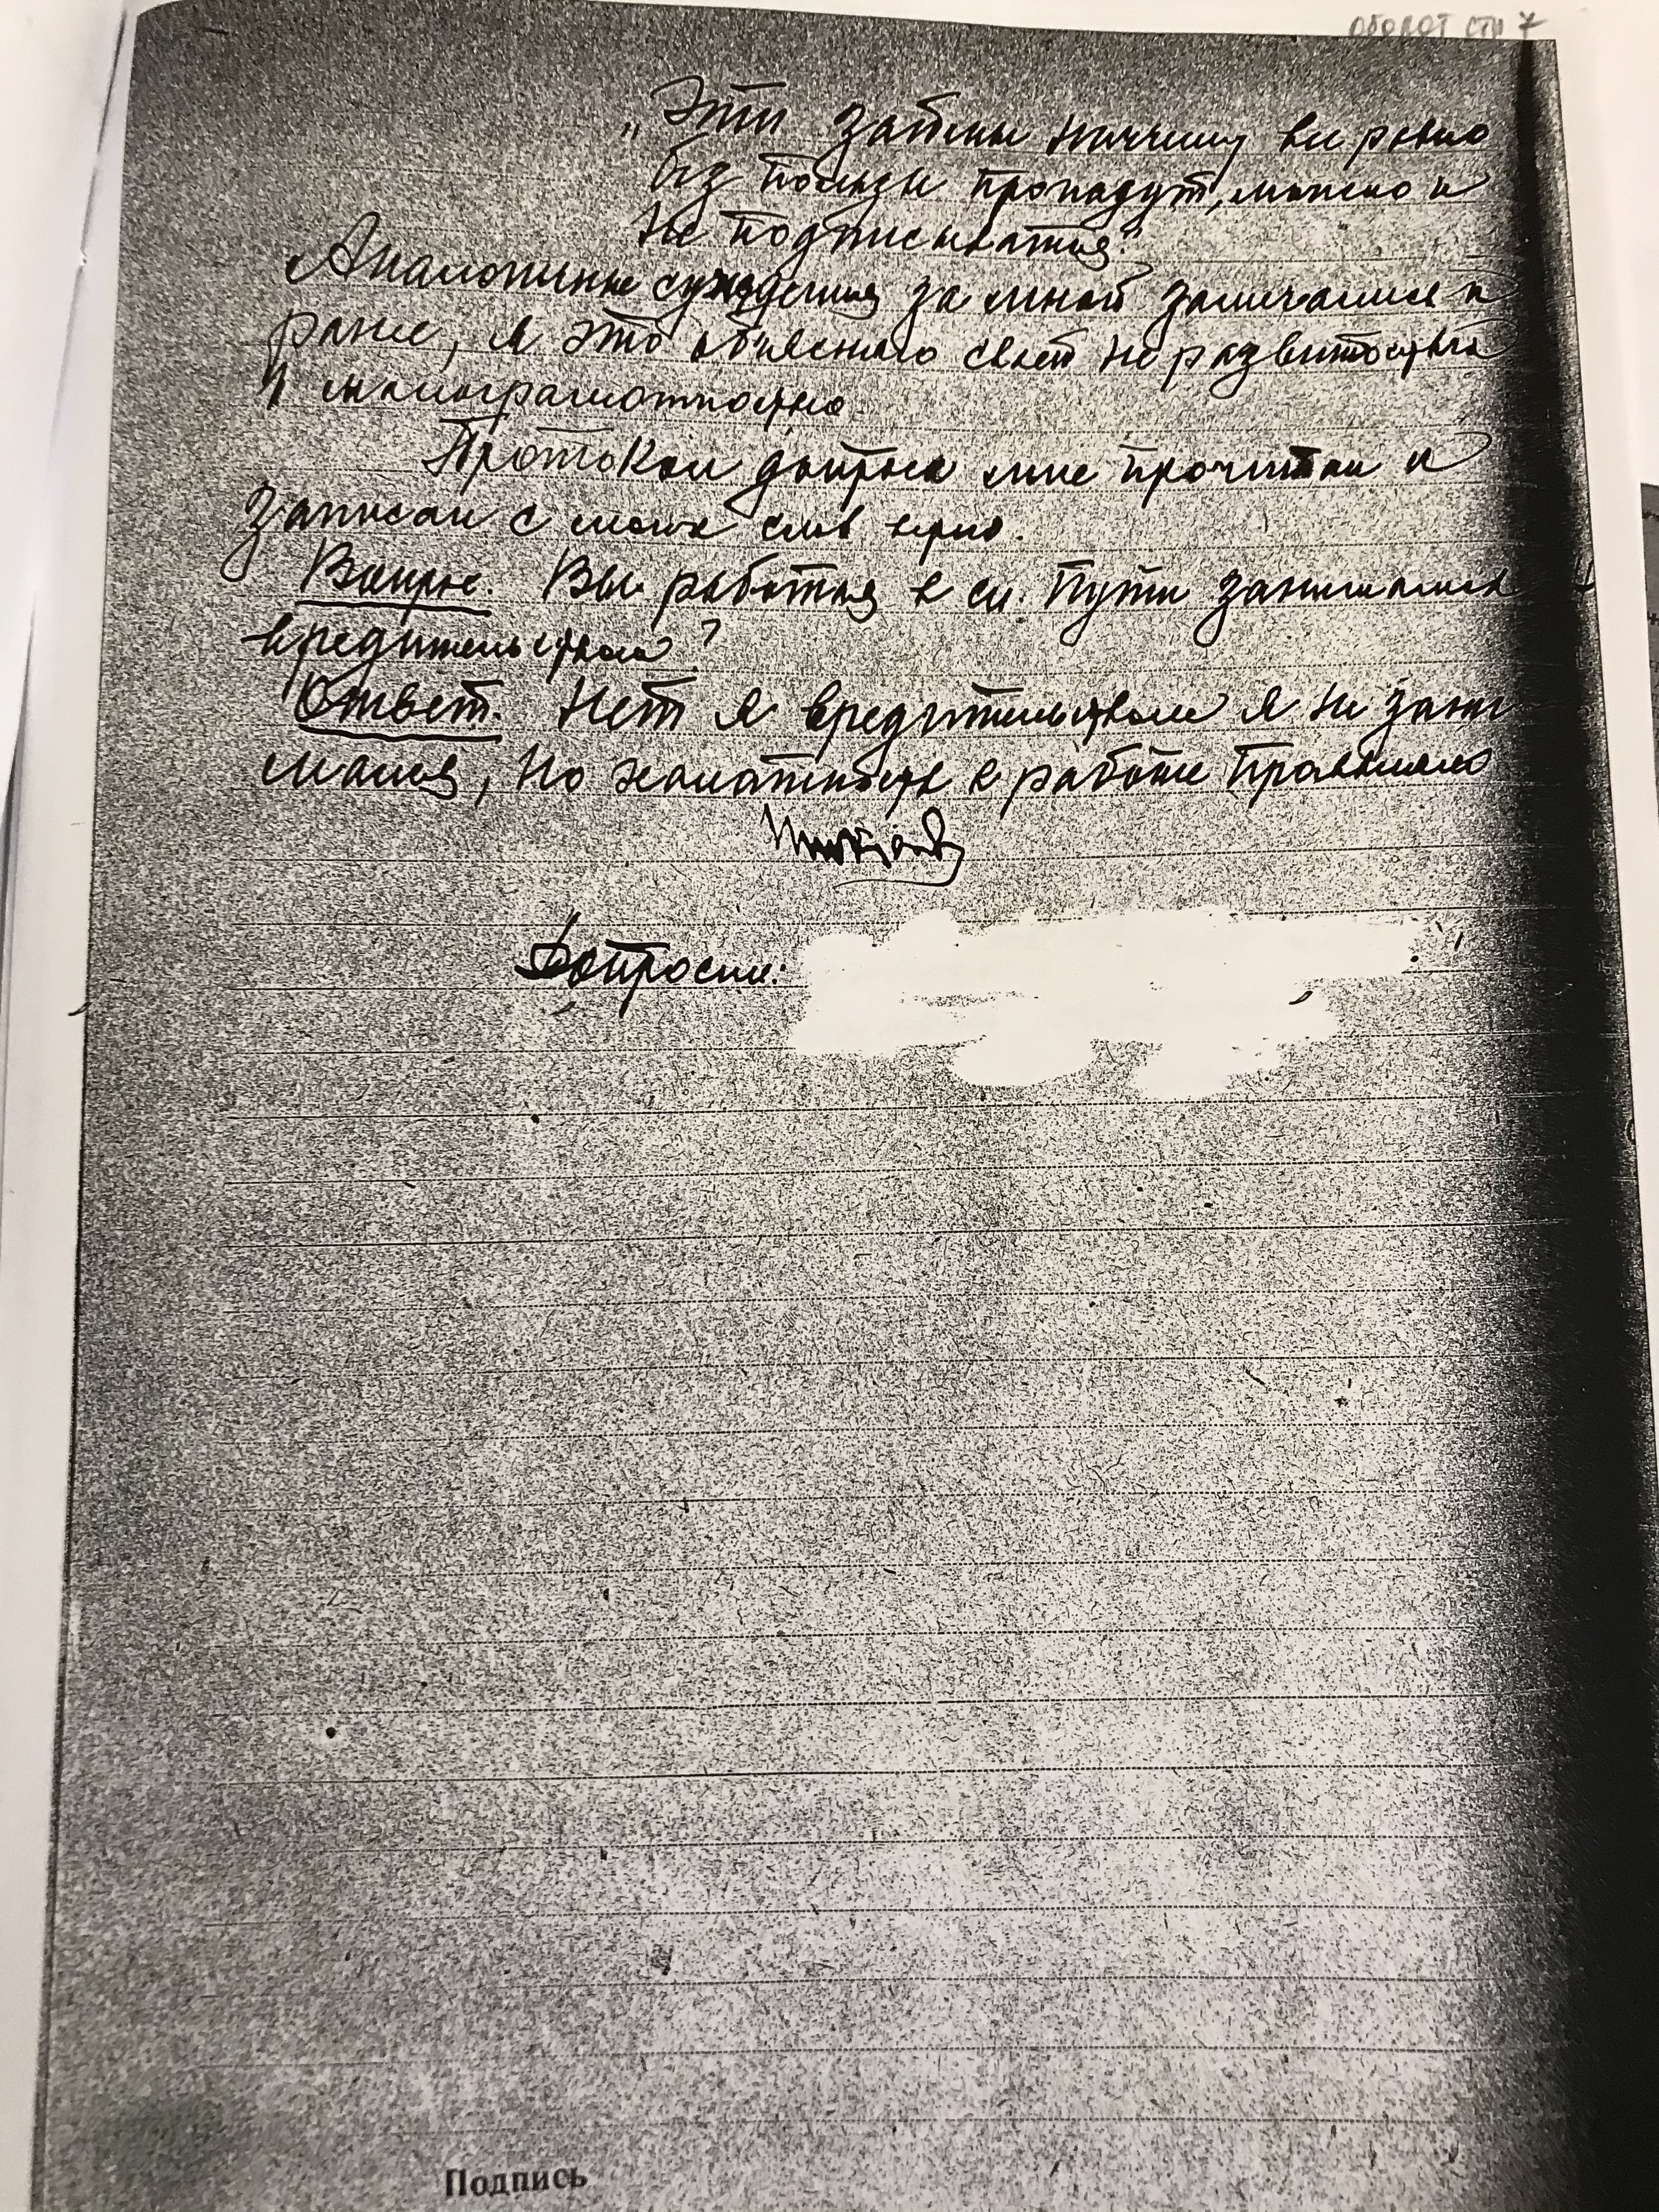 оборот стр 7
„Эти займы ни к чему все равно
без пользы пропадут, можно и
не подписываться".
Аналогичные суждения за мной замечались и
ранее, я это об'ясняю своей неразвитостью
и малограмотностью
Протокол допроса мне прочитан и
записан с моих слов верно.
Вопрос. Вы работая в сл. Пути занимались
вредительством?
Ответ. Нет я вредительством я не зани
мался, но халатность в работе проявлял
Допросил:
Подпись